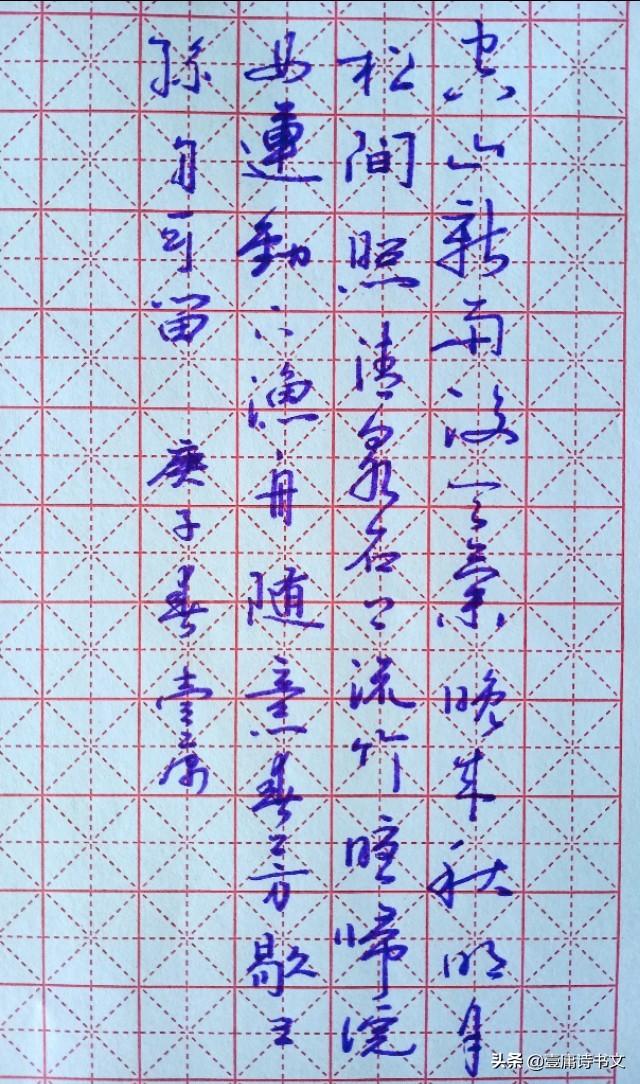 空山新雨後天氣晚来秋明月
松间照清泉石上流竹喧歸浣
女蓮動下漁舟随意春芳歇王
孫自可留 庚子春壹庸
头条 @壹庸诗书文